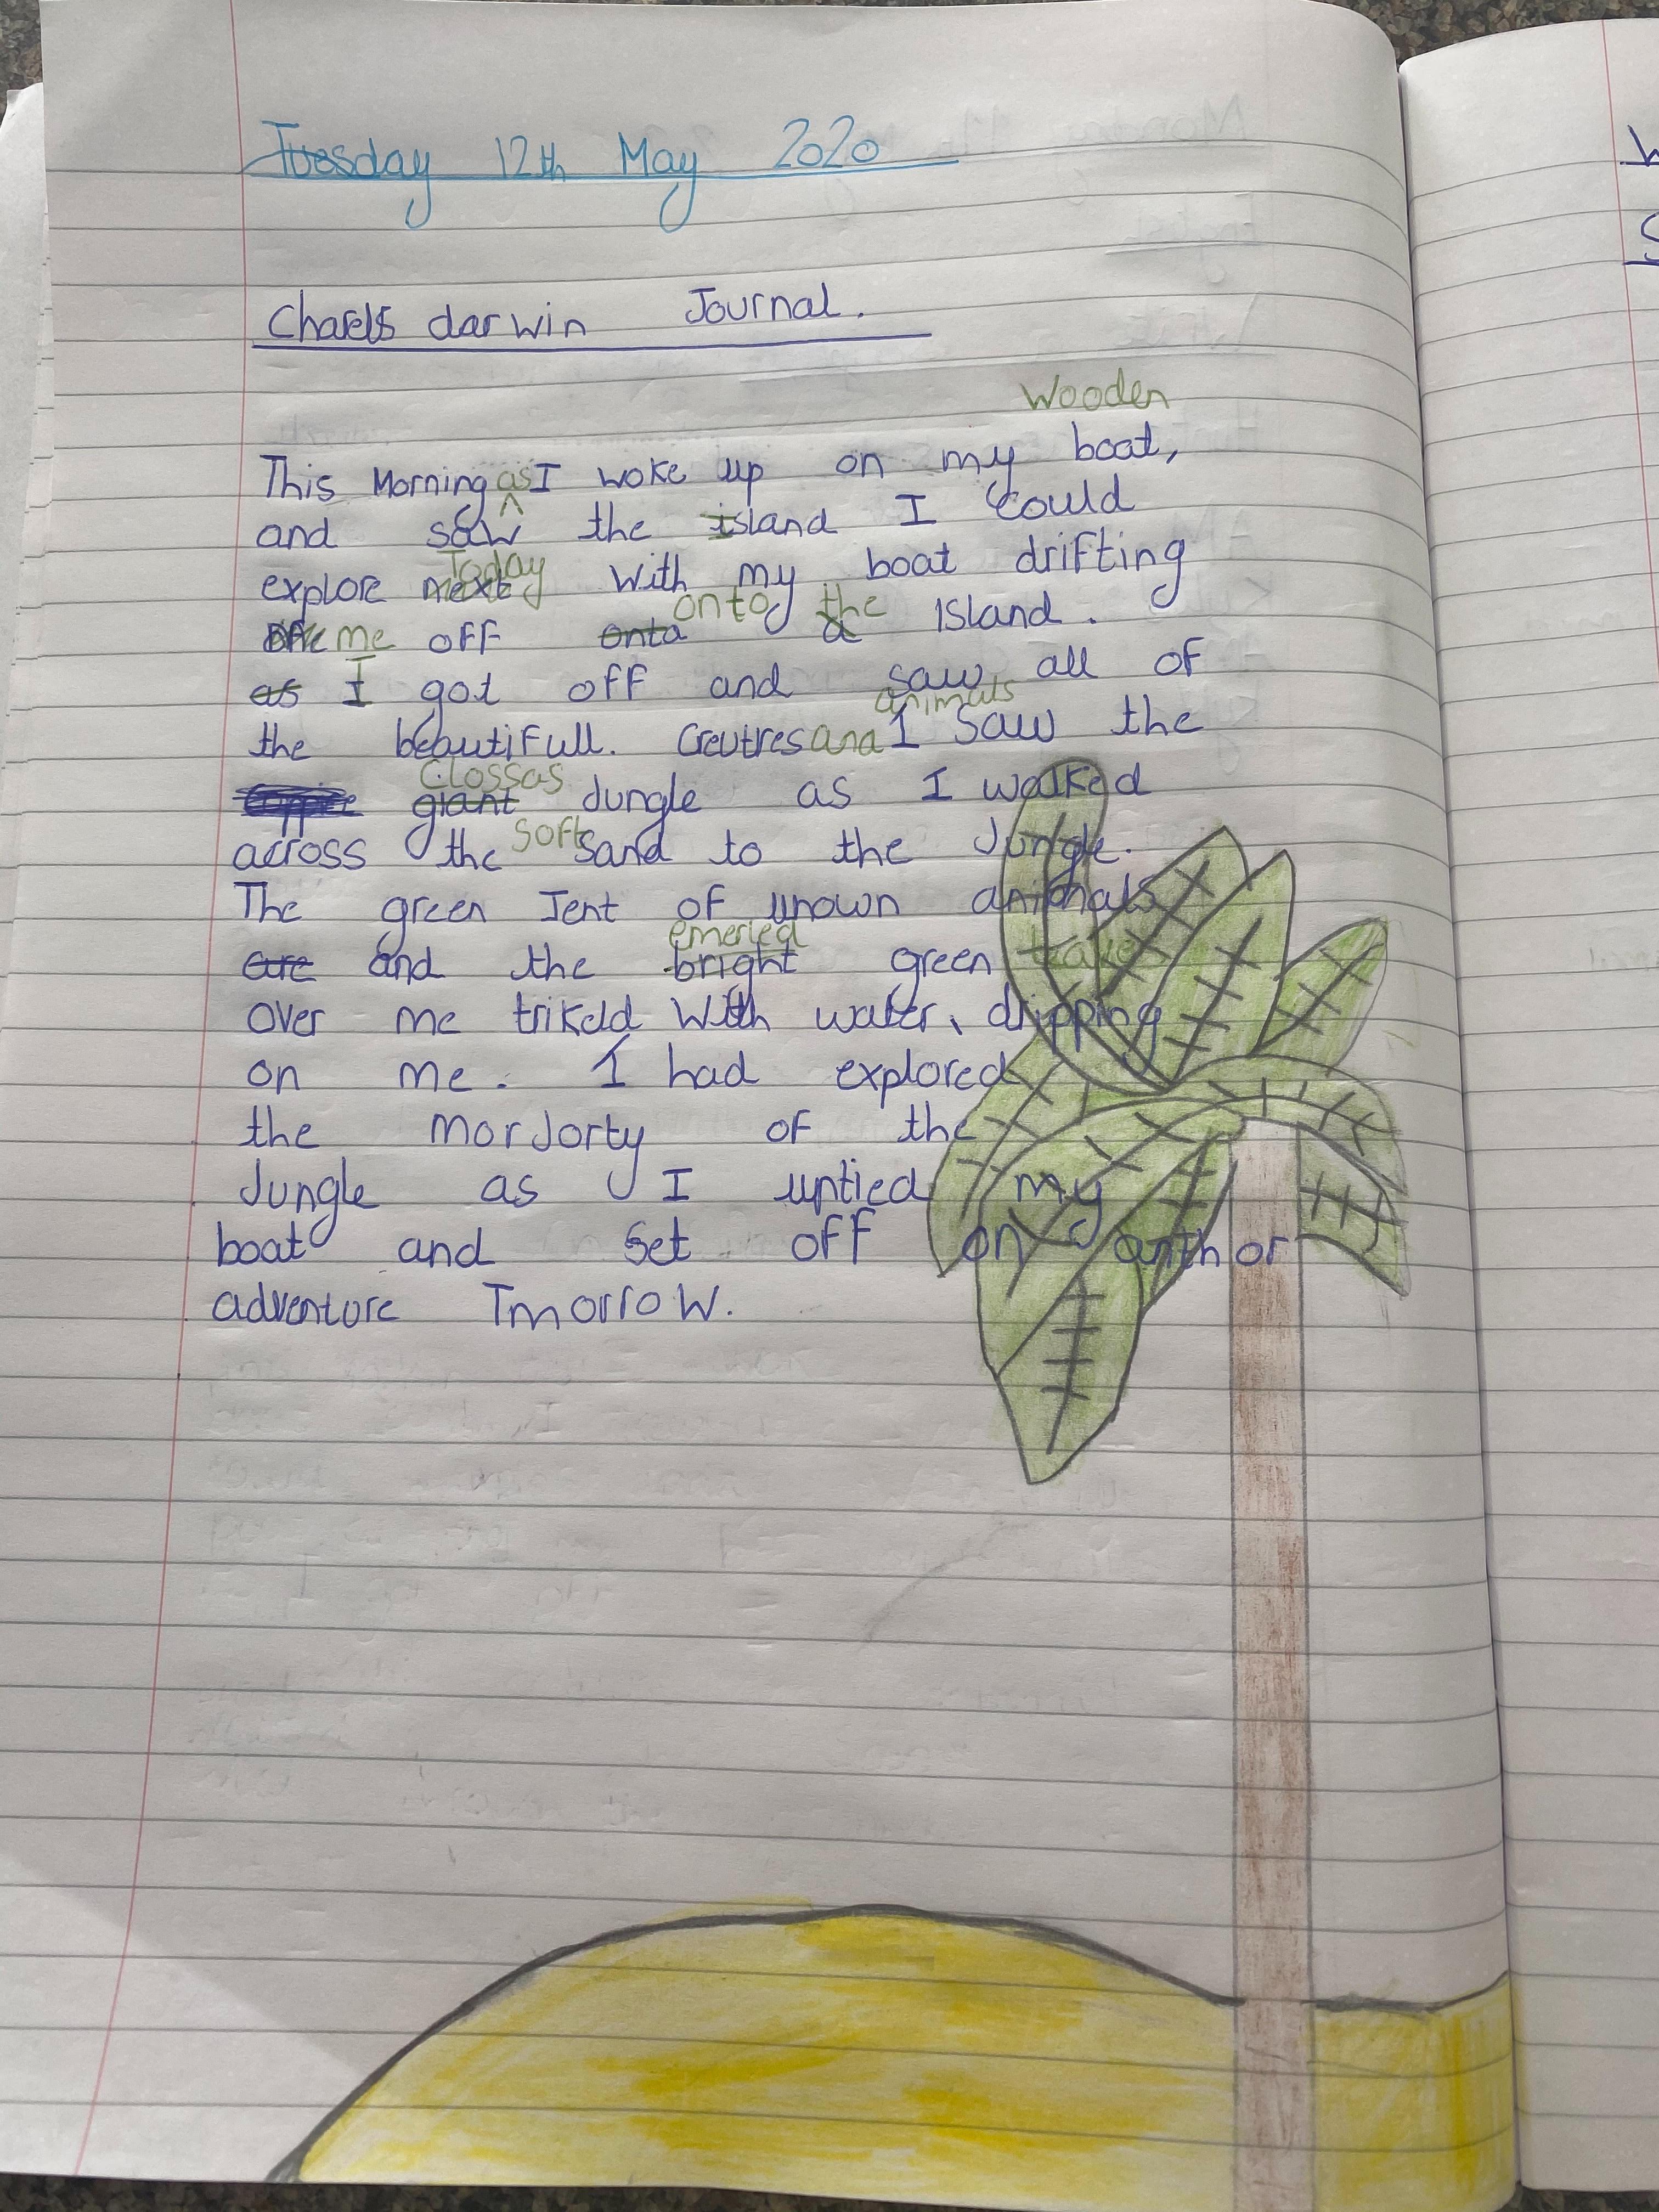 Tuesday 12th May 2020
Charels darwin Journal.
Wooden
This Morning as I woke up on my boat,
and saw the island I could
Today
explore next with my boat drifting
onto the
me off onta a Island.
as I got off and saw all of
animals
the beautifull. Creutres and I saw the
Clossas
giant Jungle as I walked
soft
across the sand to the Jungle.
The green Tent of unown animals
emerled
are and the bright green
over me trikeld with water, dripping
on me. I had explored
the morJorty of the
Jungle as I uptied my
boat and set off on anthor
adventure Tmorrow.